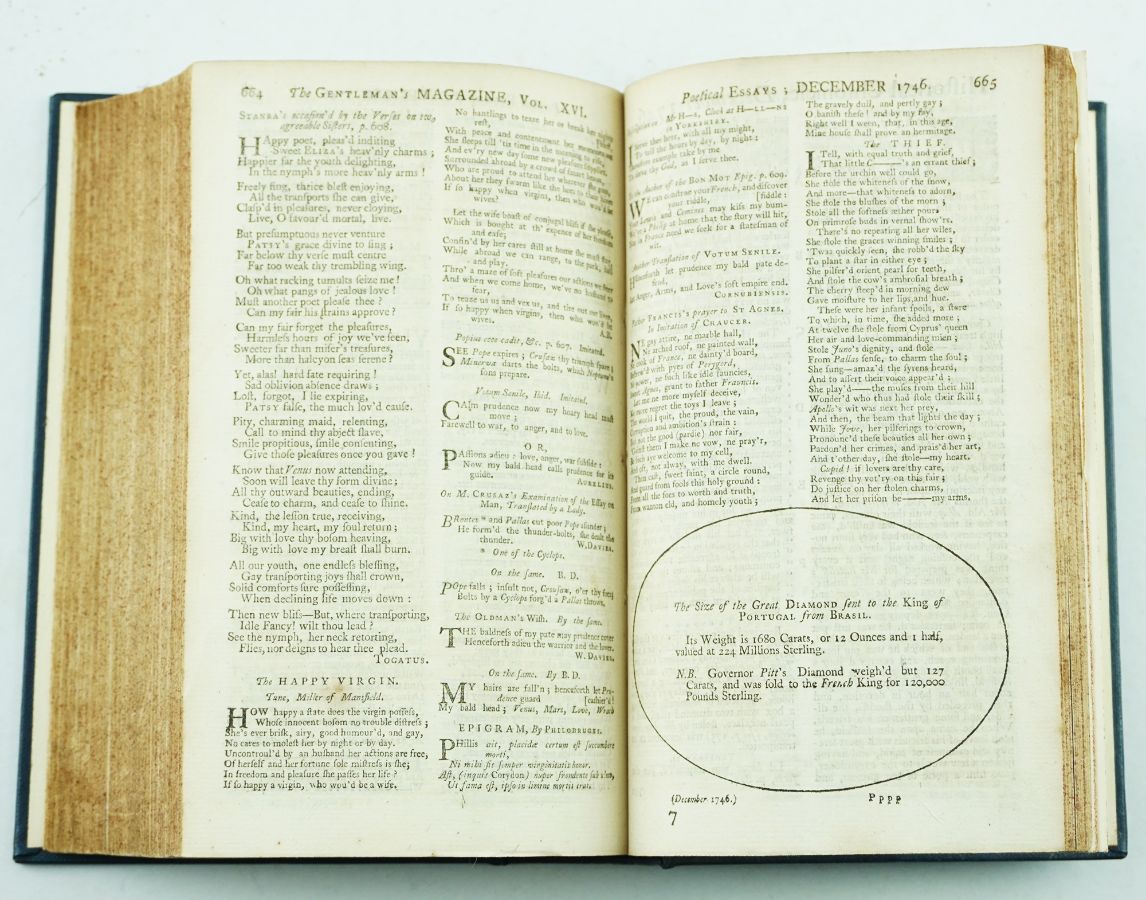 664 The GENTLEMAN's MAGAZINE, VOL. XVI.
STANZA's occasion'd by the Verses on two
agreeable Sisters, p. 608.
HAppy poet, pleas'd inditing
Sweet ELIZA's heav'nly charms;
Happier far the youth delighting,
In the nymph's more heav'nly arms!
Freely sing, thrice blest enjoying,
All the transports she can give,
Clasp'd in pleasures, never cloying,
Live, O favour'd mortal, live.
But presumptuous never venture
PATSY's grace divine to sing;
Far below thy verse must centre
Far too weak thy trembling wing.
Oh what racking tumults seize me!
Oh what pangs of jealous love!
Must another poet please thee?
Can my fair his strains approve?
Can my fair forget the pleasures,
Harmless hours of joy we've seen,
Sweeter far than miser's treasures,
More than halcyon seas serene?
Yet, alas! hard fate requiring!
Sad oblivion absence draws;
Lost, forgot, I lie expiring,
PATSY false, the much lov'd cause.
Pity, charming maid, relenting,
Call to mind thy abject slave,
Smile propitious, smile consenting,
Give those pleasures once you gave!
Know that Venus now attending,
Soon will leave thy form divine;
All thy outward beauties, ending,
Cease to charm, and cease to shine.
Kind, the lesson true, receiving,
Kind, my heart, my soul return;
Big with love thy bosom heaving,
Big with love my breast shall burn.
All our youth, one endless blessing,
Gay transporting joys shall crown,
Solid comforts sure possessing,
When declining life moves down:
Then new bliss—But, where transporting,
Idle Fancy! wilt thou lead?
See the nymph, her neck retorting,
Flies, nor deigns to hear thee plead.
TOGATUS.
The HAPPY VIRGIN.
Tune, Miller of Mansfield.
HOW happy a state does the virgin possess,
Whose innocent bosom no trouble distress;
She's ever brisk, airy, good humour'd, and gay,
No cares to molest her by night or by day.
Uncontroul'd by an husband her actions are free,
Of herself and her fortune sole mistress is she;
In freedom and pleasure she passes her life?
If so happy a virgin, who wou'd be a wife.
No bantlings to tease her or break her nights
rest,
With peace and contentment her
She sleeps till 'tis time in the morning to rise,
And ev'ry new day some new pleasure supplies.
Surrounded abroad by a crowd of smart beaus,
Who are proud to attend her wherever she goes,
About her they swarm like the bees to their hives
If so happy when virgins, then who wou'd be
wives?
Let the wife boast of conjugal bliss if she please,
Which is bought at th' expence of her freedom
and ease;
Confin'd by her cares still at home she must stay,
While abroad we can range, to the park, ball
and play.
Thro' a maze of soft pleasures our actions we steer
And when we come home, we've no husband to
fear,
To tease us and vex us, and tire out our lives,
If so happy when virgins, then who wou'd be
wives.
A.B.
Popius ecce cadit, &c. p. 607. Imitated.
SEE Pope expires; Crusax thy triumph spare;
Minerva darts the bolts, which Neptune's
sons prepare.
Votum Senile, Ibid. Imitated.
CAlm prudence now my hoary head must
move;
Farewell to war, to anger, and to love.
OR,
PAssions adieu: love, anger, war subside:
Now my bald head calls prudence for its
guide.
AURELIUS.
On M. CRUSAZ's Examination of the Essay on
Man, Translated by a Lady.
BRontes * and Pallas cut poor Pope asunder;
He form'd the thunder-bolts, she dealt the
thunder.
W. DAVIES.
* One of the Cyclops.
On the same. B. D.
POpe falls; insult not, Crousax, o'er thy song
Bolts by a Cyclops forg'd a Pallas thrown.
The OLDMAN's Wish. By the same.
THE baldness of my pate may prudence cover
Henceforth adieu the warrior and the lover.
W. DAVIES.
On the same. By B. D.
MY hairs are fall'n; henceforth let Pru-
dence guard [cashier'd!
My bald head; Venus, Mars, Love, Wrath
EPIGRAM, By PHILOBRUGES.
PHillis ait, placidæ certum est succumbere
morti,
Ni mihi sit semper virginitatis honor.
Ast, (inquit Corydon) nuper frondente sub ulmo,
Ut fama est, ipso in limine mortis eras.
Poetical ESSAYS; DECEMBER 1746. 665
Mr H—s, Clerk at H—LL—NS
in YORKSHIRE.
here, with all my might,
To tell the hours by day, by night:
example take by me
To serve thy God, as I serve thee.
Author of the BON MOT Epig. p. 609.
WE can construe your French, and discover
your riddle, [fiddle:
and Cominez may kiss my bum-
at home that the story will hit,
need we seek for a statesman of
wit.
Another Translation of VOTUM SENILE.
Henceforth let prudence my bald pate de-
fend,
Anger, Arms, and Love's soft empire end.
CORNUBIENSIS.
FRANCIS's prayer to ST AGNES.
In Imitation of CHAUCER.
NE gay attire, ne marble hall,
Ne arched roof, ne painted wall,
of France, ne dainty'd board,
with pyes of Perygord,
ne such like idle fauncies,
Agnes, grant to father Frauncis.
Let me ne more myself deceive,
Ne more regret the toys I leave;
The world I quit, the proud, the vain,
Corruption and ambition's strain:
But not the good (pardie) nor fair,
'Gainst them I make ne vow, ne pray'r,
But such aye welcome to my cell,
And oft, not alway, with me dwell.
Then cast, sweet faint, a circle round,
And guard from fools this holy ground:
From all the foes to worth and truth,
From wanton eld, and homely youth;
The gravely dull, and pertly gay;
O banish these! and by my fay,
Right well I ween, that, in this age,
Mine house shall prove an hermitage.
The THIEF.
I Tell, with equal truth and grief,
That little C———'s an errant thief;
Before the urchin well could go,
She stole the whiteness of the snow,
And more—that whiteness to adorn,
She stole the blushes of the morn;
Stole all the softness æther pours
On primrose buds in vernal show'rs.
There's no repeating all her wiles,
She stole the graces winning smiles;
'Twas quickly seen, she robb'd the sky
To plant a star in either eye;
She pilfer'd orient pearl for teeth,
And stole the cow's ambrosial breath;
The cherry steep'd in morning dew
Gave moisture to her lips, and hue.
These were her infant spoils, a store
To which, in time, she added more;
At twelve she stole from Cyprus' queen
Her air and love-commanding mien;
Stole Juno's dignity, and stole
From Pallas sense, to charm the soul;
She sung—amaz'd the syrens heard,
And to assert their voice appear'd;
She play'd—the muses from their hill
Wonder'd who thus had stole their skill;
Apollo's wit was next her prey,
And then, the beam that lights the day;
While Jove, her pilferings to crown,
Pronounc'd these beauties all her own;
Pardon'd her crimes, and prais'd her art,
And t'other day, she stole—my heart.
Cupid! if lovers are thy care,
Revenge thy vot'ry on this fair;
Do justice on her stolen charms,
And let her prison be———my arms.
The Size of the Great DIAMOND sent to the King of
PORTUGAL from BRASIL.
Its Weight is 1680 Carats, or 12 Ounces and 1 half,
valued at 224 Millions Sterling.
N.B. Governor Pitt's Diamond weigh'd but 127
Carats, and was sold to the French King for 120,000
Pounds Sterling.
(December 1746.) Pppp
7